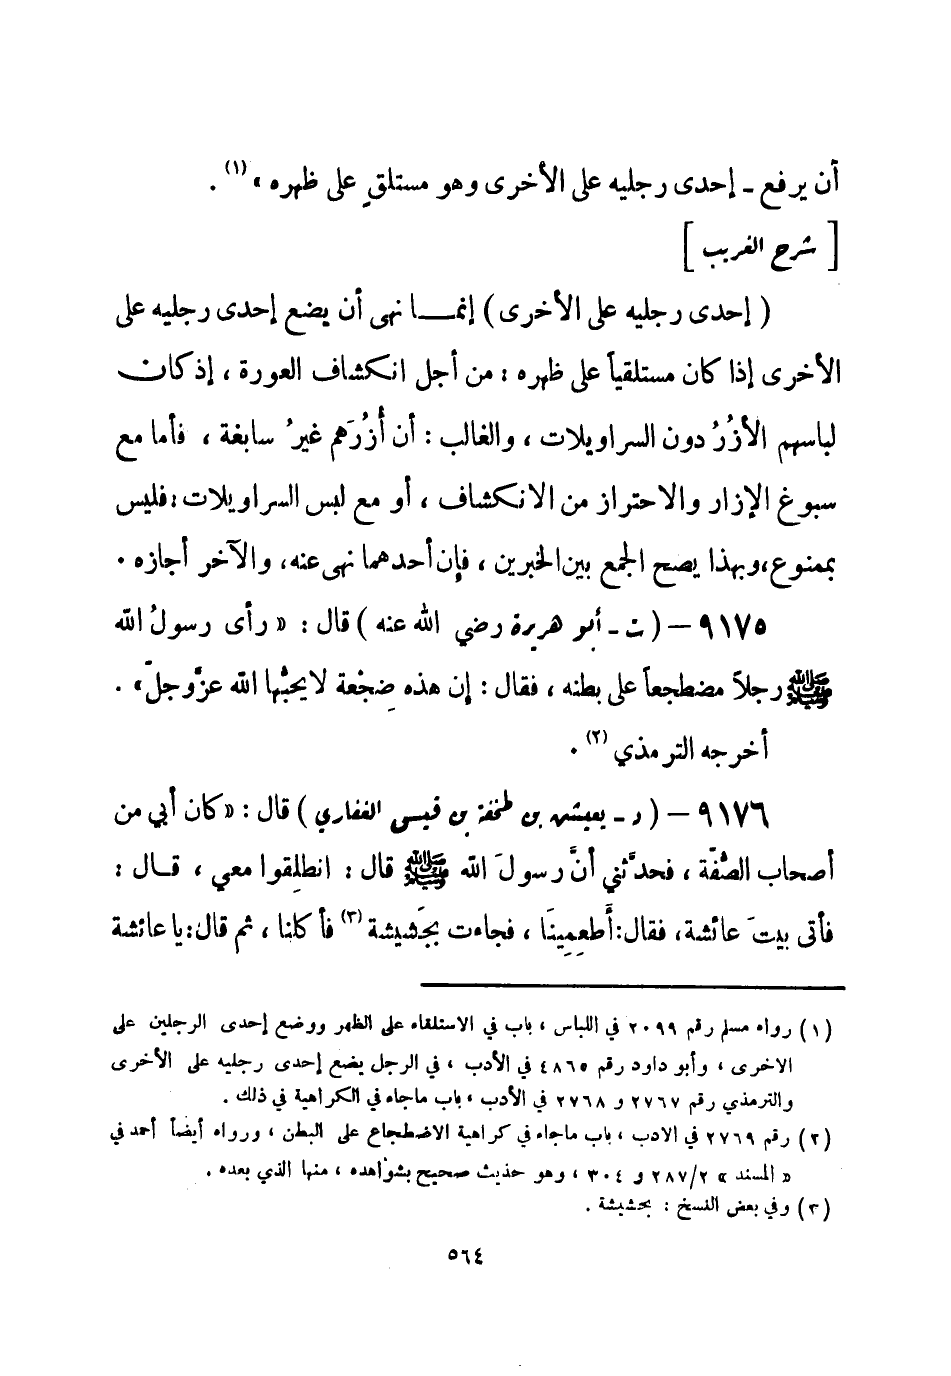 أن يرفع ـ إحدى رجليه على الأخرى وهو مستلقٍ على ظهره » (١) .
[ شرح الغريب ]
( إحدى رجليه على الأخرى ) إنمـــا نهى أن يضع إحدى رجليه على
الأخرى إذا كان مستلقياً على ظهره : من أجل انكشاف العورة ، إذ كان
لباسهم الأُزُرُ دون السراويلات ، والغالب : أن أُزُرَهم غيرُ سابغة ، فأما مع
سبوغ الإزار والاحتراز من الانكشاف ، أو مع لبس السراويلات : فليس
بممنوع ، وبهذا يصح الجمع بين الخبرين ، فإن أحدهما نهى عنه ، والآخر أجازه .
٩١٧٥ – ( ت ـ أبو هريرة رضي الله عنه ) قال : « رأى رسولُ الله
ﷺ رجلاً مضطجعاً على بطنه ، فقال : إن هذه ضِجْعة لا يحبُّها الله عزَّ وجلَّ » .
أخرجه الترمذي (٢) .
٩١٧٦ – ( د ـ يعيش بن طخفة بن قيس الغفاري ) قال : « كان أبي من
أصحاب الصُّفَّة ، فحدَّثني أنَّ رسولَ الله ﷺ قال : انطلِقوا معي ، قـال :
فأتى بيتَ عائشة ، فقال : أَطعِمِينَا ، فجاءت بجَشيشة (٣) فأكلنا ، ثم قال : يا عائشة
(١) رواه مسلم رقم ٢٠٩٩ في اللباس ، باب في الاستلقاء على الظهر ووضع إحدى الرجلين على
الاخرى ، وأبو داود رقم ٤٨٦٥ في الأدب ، في الرجل يضع إحدى رجليه على الأخرى
والترمذي رقم ٢٧٦٧ و ٢٧٦٨ في الأدب ، باب ماجاء في الكراهية في ذلك .
(٢) رقم ٢٧٦٩ في الادب ، باب ماجاء في كراهية الاضطجاع على البطن ، ورواه أيضاً أحمد في
« المسند » ٢/٢٨٧ و ٣٠٤ ، وهو حديث صحيح بشواهده ، منها الذي بعده .
(٣) وفي بعض النسخ : بحشيشة .
٥٦٤